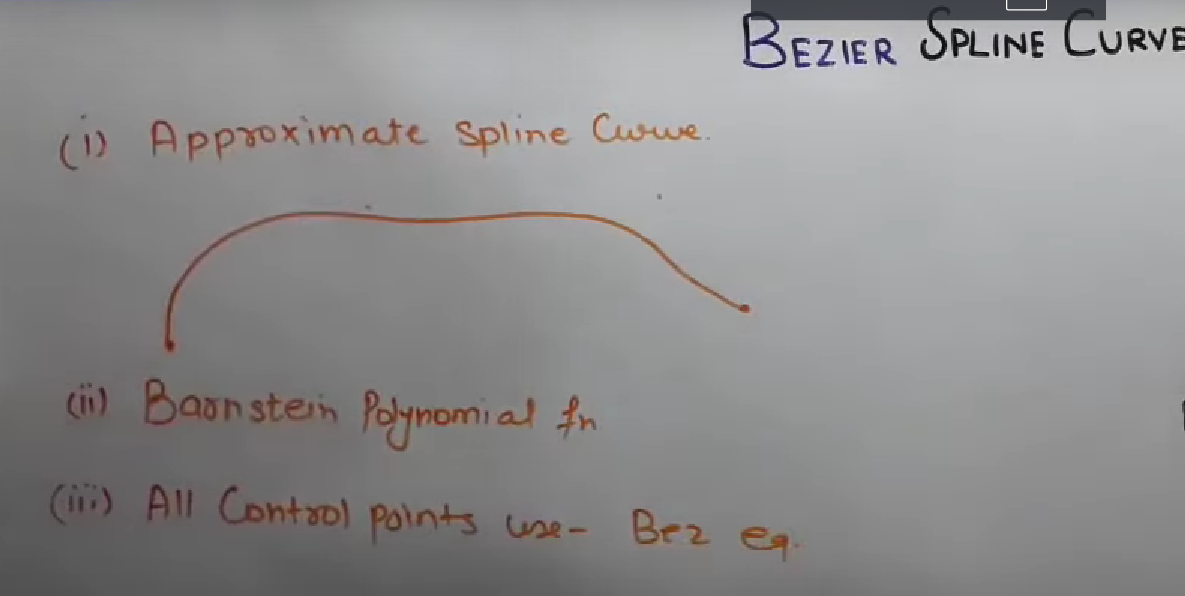 BEZIER SPLINE CURVE
(i) Approximate Spline Curve.
(ii) Barnstein Polynomial fn
(iii) All Control points use- Bez eq.